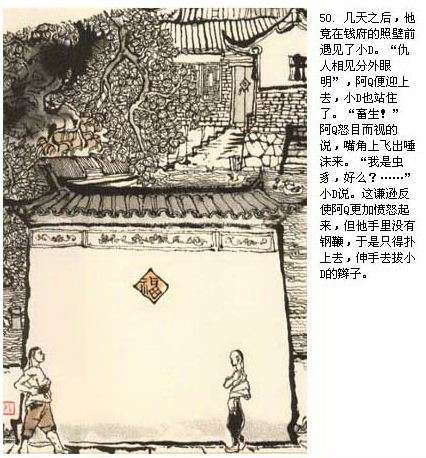 50. 几天之后，他
竟在钱府的照壁前
遇见了小D。“仇
人相见分外眼
明”，阿Q便迎上
去，小D也站住
了。“畜生！”
阿Q怒目而视的
说，嘴角上飞出唾
沫来。“我是虫
豸，好么？……”
小D说。这谦逊反
使阿Q更加愤怒起
来，但他手里没有
钢鞭，于是只得扑
上去，伸手去拔小
D的辫子。
福